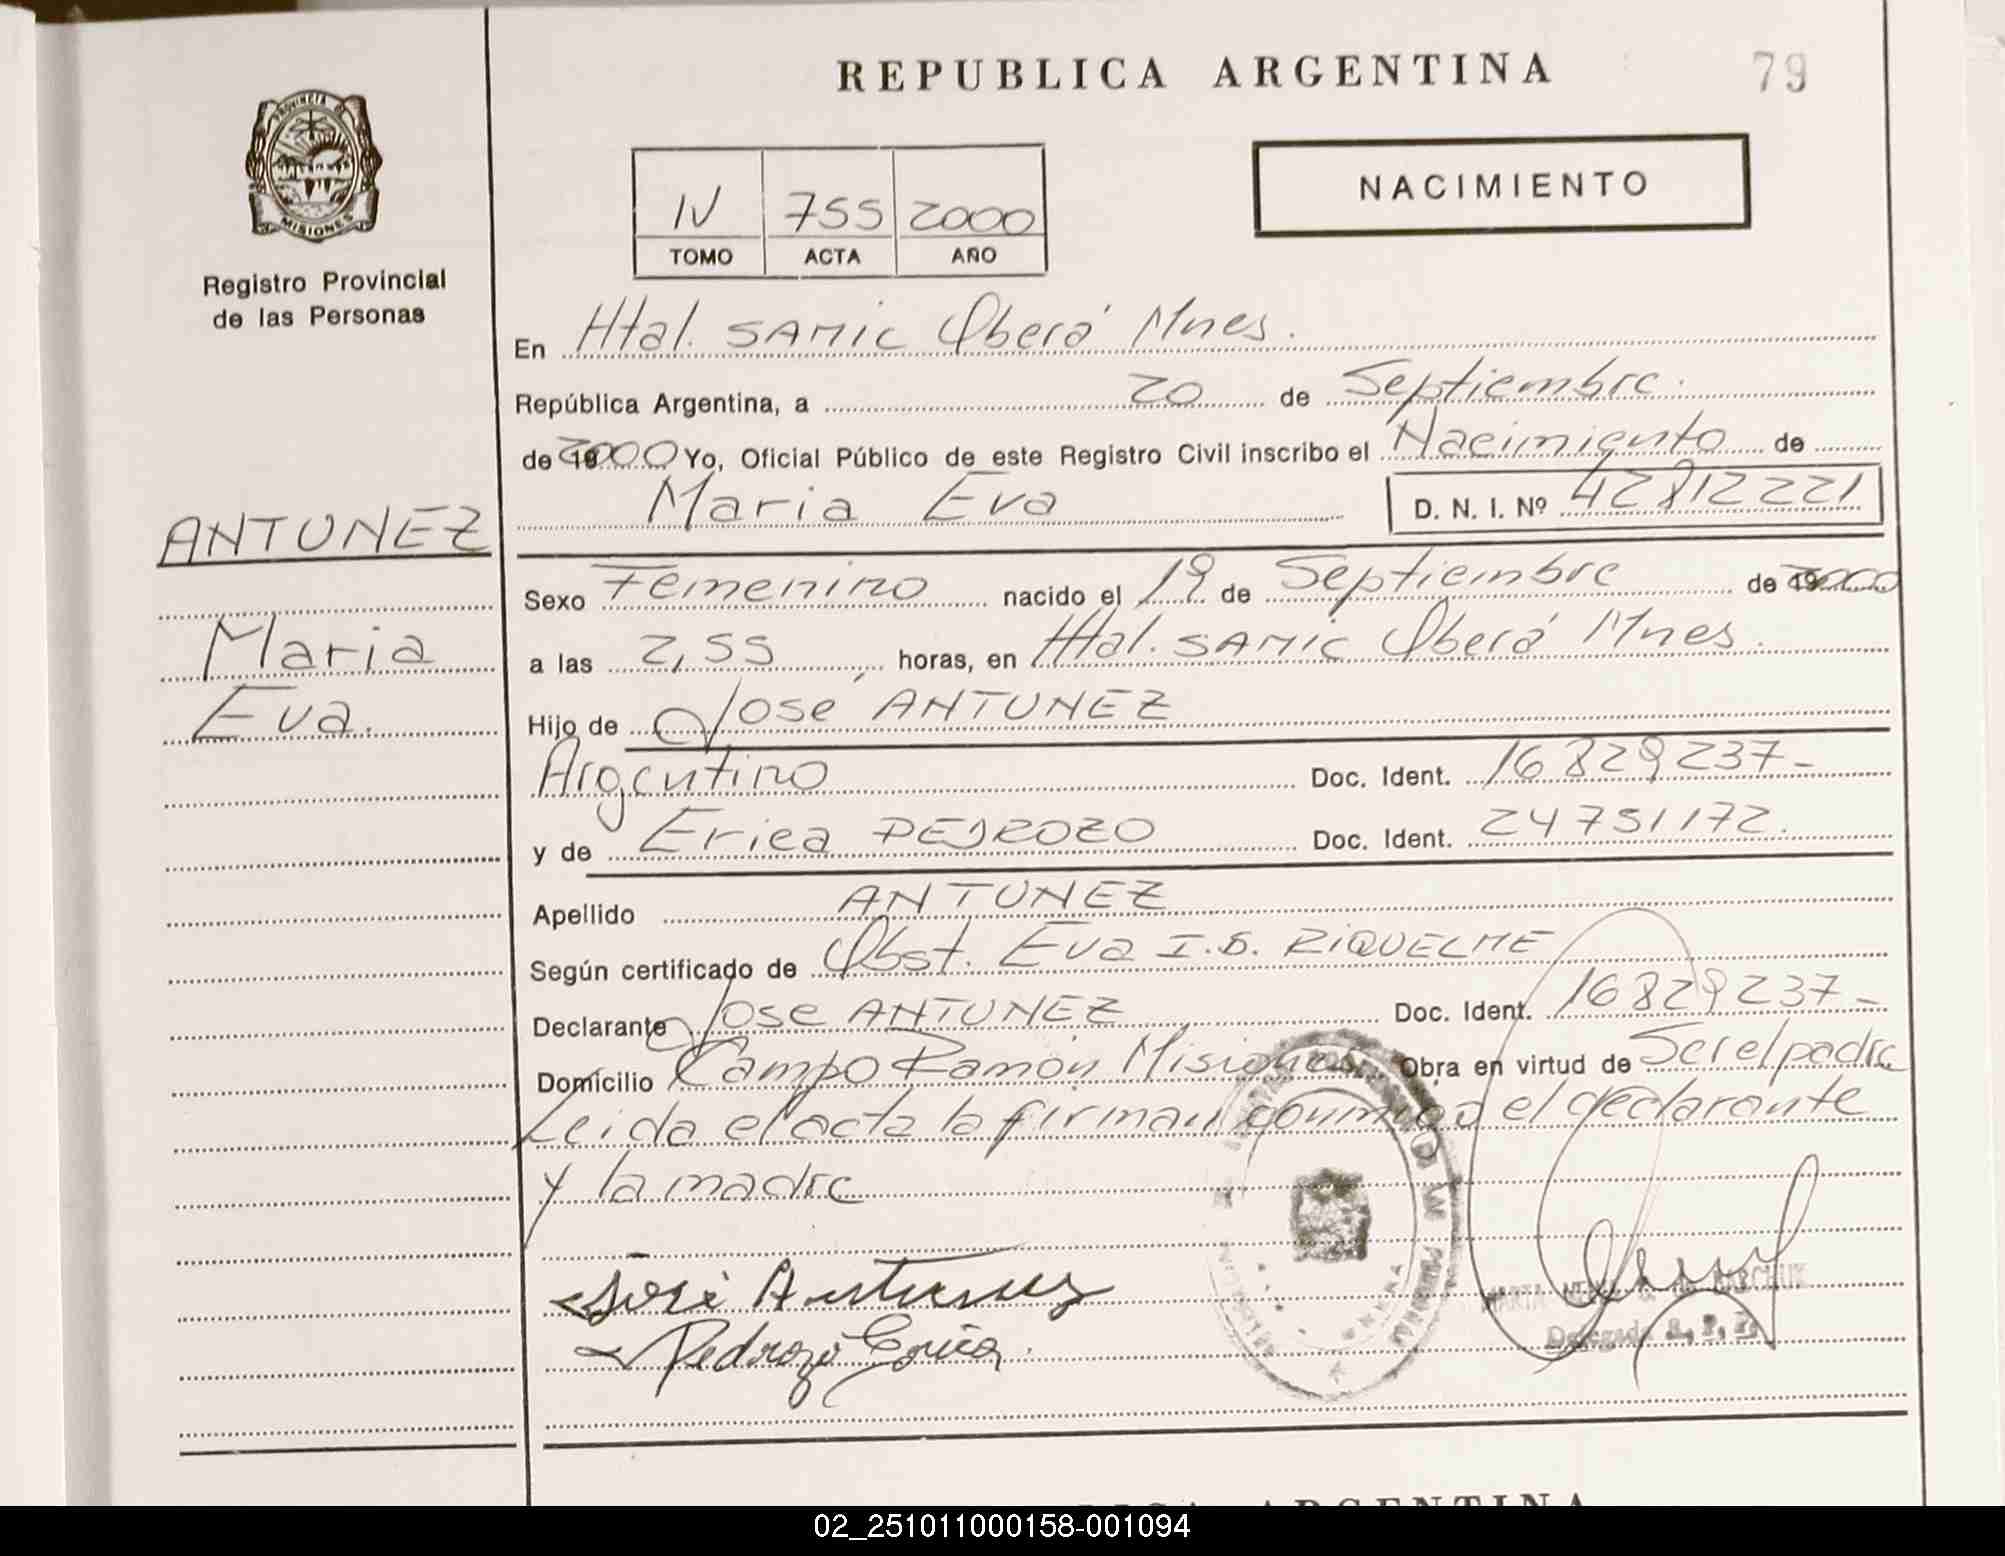 REPUBLICA ARGENTINA
79
PROVINCIA D
MISIONES
Registro Provincial
de las Personas
IV 755 2000
TOMO ACTA AÑO
NACIMIENTO
En Htal. SAMIC Oberá Mnes.
República Argentina, a 20 de Septiembre.
de 2000 Yo, Oficial Público de este Registro Civil inscribo el Nacimiento de
Maria Eva D. N. I. Nº 42812221
ANTUNEZ
Maria
Eva.
Sexo Femenino nacido el 19 de Septiembre de 2000
a las 2,55 horas, en Htal. SAMIC Oberá Mnes.
Hijo de José ANTUNEZ
Argentino Doc. Ident. 16829237-
y de Erica PEDROZO Doc. Ident. 24751172.
Apellido ANTUNEZ
Según certificado de Obst. Eva I.D. RIQUELME
Declarante Jose ANTUNEZ Doc. Ident. 16829237-
Domicilio Campo Ramón Misiones Obra en virtud de Ser el padre
Leida el acta la firman conmigo el declarante
y la madre
José Antunez
Pedrozo Erica
MARTA
Delegada R. P. P.
02_251011000158-001094